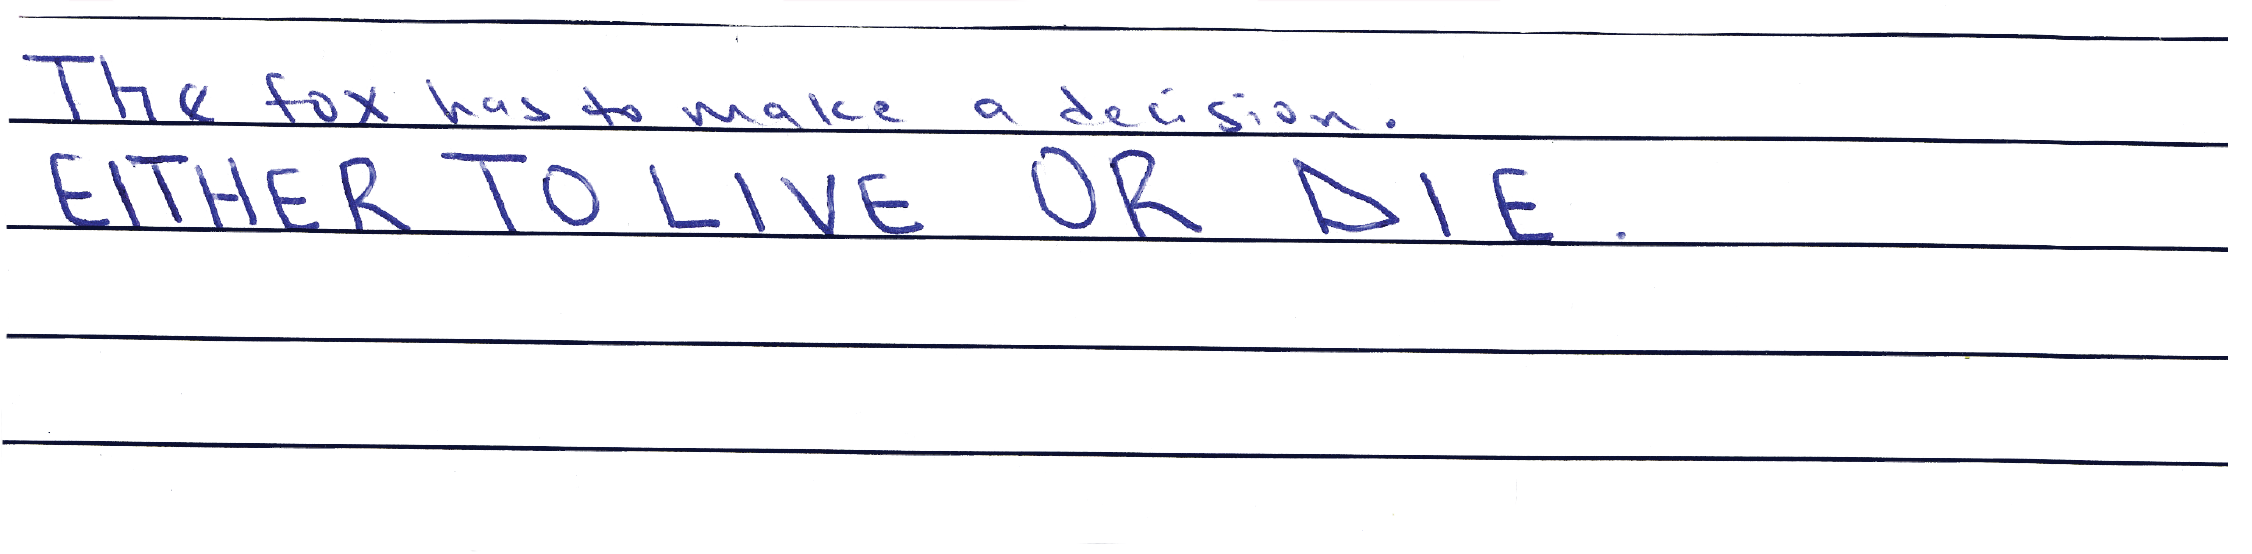 The fox has to make a decision.
EITHER TO LIVE OR DIE.